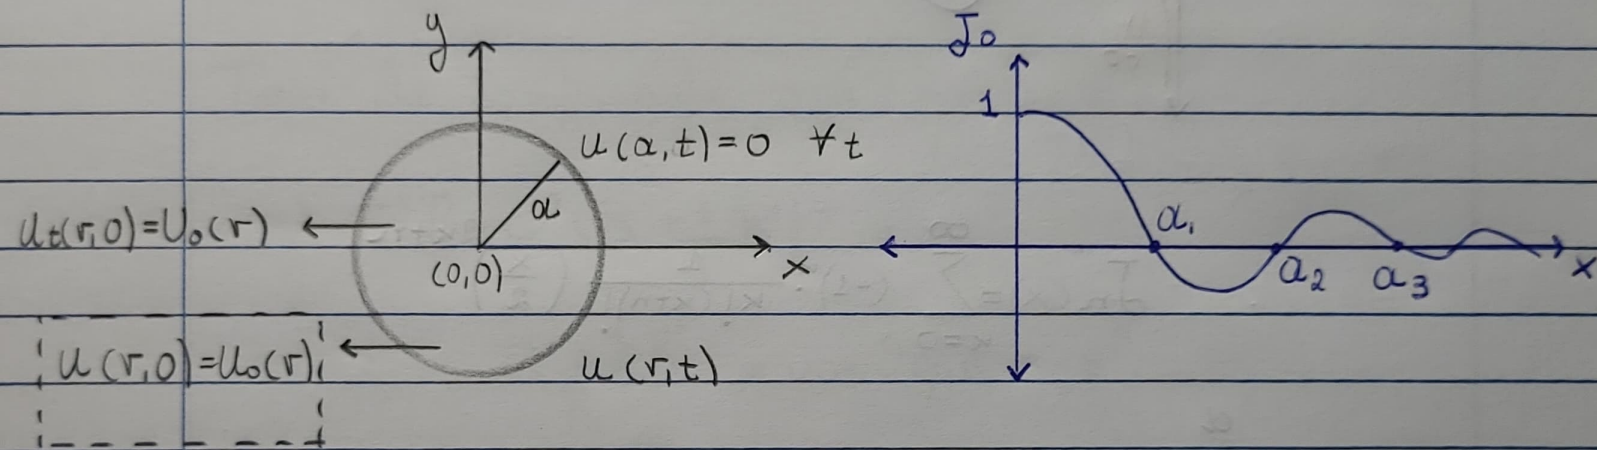 y
u(a,t)=0 ∀t
a
uₜ(r,0)=U₀(r)
(0,0)
x
u(r,0)=u₀(r)
u(r,t)
J₀
1
a₁
a₂
a₃
x